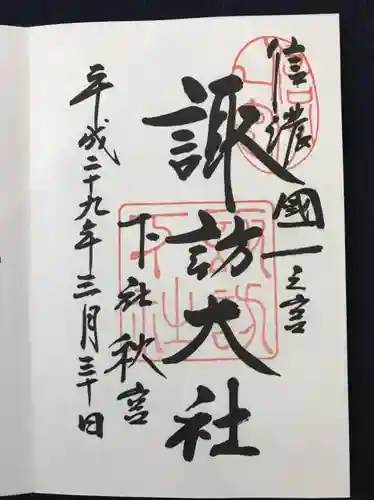 信濃國一之宮
諏訪大社
下社秋宮
平成二十九年三月三十日